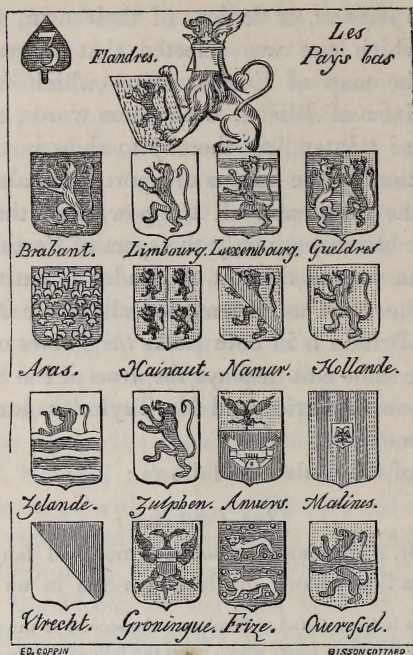 3
Flandres.
Les
Paÿs bas
Brabant. Limbourg. Luxembourg. Gueldres
Aras. Hainaut. Namur. Hollande.
Zelande. Zulphen. Anvers. Malines.
Vtrecht. Groningue. Frize. Overessel.
ED. COPPIN
BISSON COTTARD